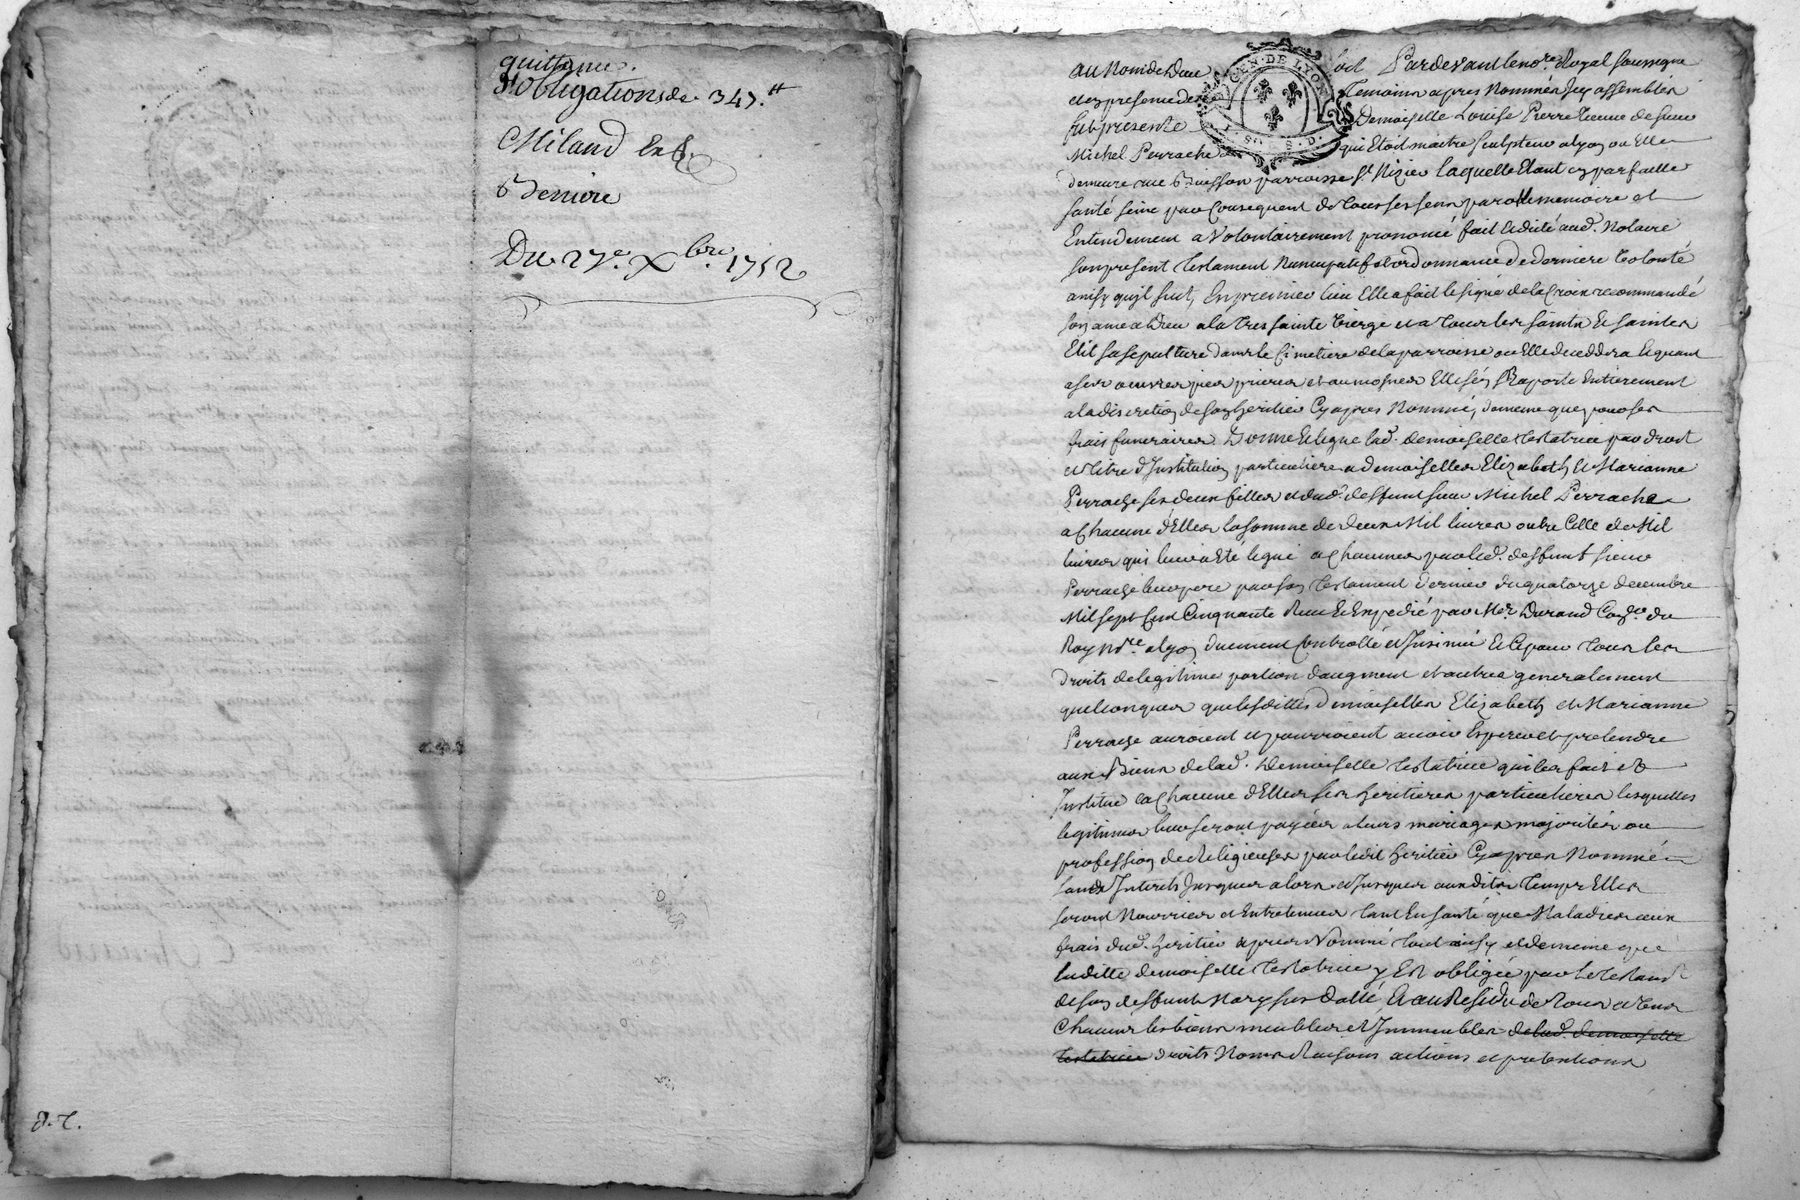 quittance
d'obligations de 347.tt
Miland
Derniere
Du 27e Xbre 1752
J. C.
GEN. DE LYON
au Nom de Dieu soit Pardevant le nore Royal soussigné
et en presence des Temoins apres Nommés Jcy assemblés
fut presente Demoiselle Louise Pierre veuve de sieur
Michel Perrache qui Etoit maitre sculpteur a lyon ou Elle
demeure rue Buisson parroisse St Nizier laquelle Etant en parfaitte
santé seine par Consequent de tous ses sens parolle memoire et
Entendement a Volontairement prononcé fait et dicté aud. Notaire
son present testament Nuncupatif et ordonnance de derniere volonté
ainsy qu'jl suit, En premier lieu Elle a fait le signe de la Croix recommandé
son ame a Dieu a la tres sainte vierge et a tous les saints et saintes
Elit sa sepulture dans le Cimetiere de la parroisse ou Elle decedera le quant
a ses oeuvres pies prieres et aumosnes Elle s'en Raporte Entierement
a la discretion de son heritier Cy apres Nommé, de meme que pour ses
frais funeraires. Donne et legue lad. demoiselle testatrice par droit
et titre d'Institution particuliere a demoiselles Elizabeth et Marianne
Perrache ses deux filles et dud. deffunt sieur Michel Perrache
a Chacune d'Elles la somme de deux Mil livres outre Celle de Mil
livres qui leur a Eté legué a Chacunes par led. deffunt sieur
Perrache leur pere par son testament dernier du quatorze decembre
Mil sept Cent Cinquante Receu et Expedié par Me. Durand Coner. du
Roy nore a lyon duement Controllé et Insinué et Ce pour tous les
droits de legitime portion d'augment et autres generalement
quelconques que lesdittes demoiselles Elizabeth et Marianne
Perrache auroient et pourroient avoir Esperer et pretendre
aux Biens de lad. demoiselle testatrice qui les fait et
Institue a Chacune d'Elles ses heritieres particulieres lesquelles
legitimes leur seront payées a leurs mariages majorités ou
profession de Religieuses par ledit heritier Cy apres Nommé
sans Interets Jusques alors et Jusques auxdits temps Elles
seront Nourries et Entretenues tant En santé que Maladies aux
frais dud. heritier apres Nommé tout ainsy et de meme que
laditte demoiselle testatrice y Est obligée par le testament
de son deffunt Mary sus datté, Et au Residu de tous et uns
Chacuns les biens meubles et Immeubles de lad. demoiselle
testatrice droits Noms Raisons actions et pretentions